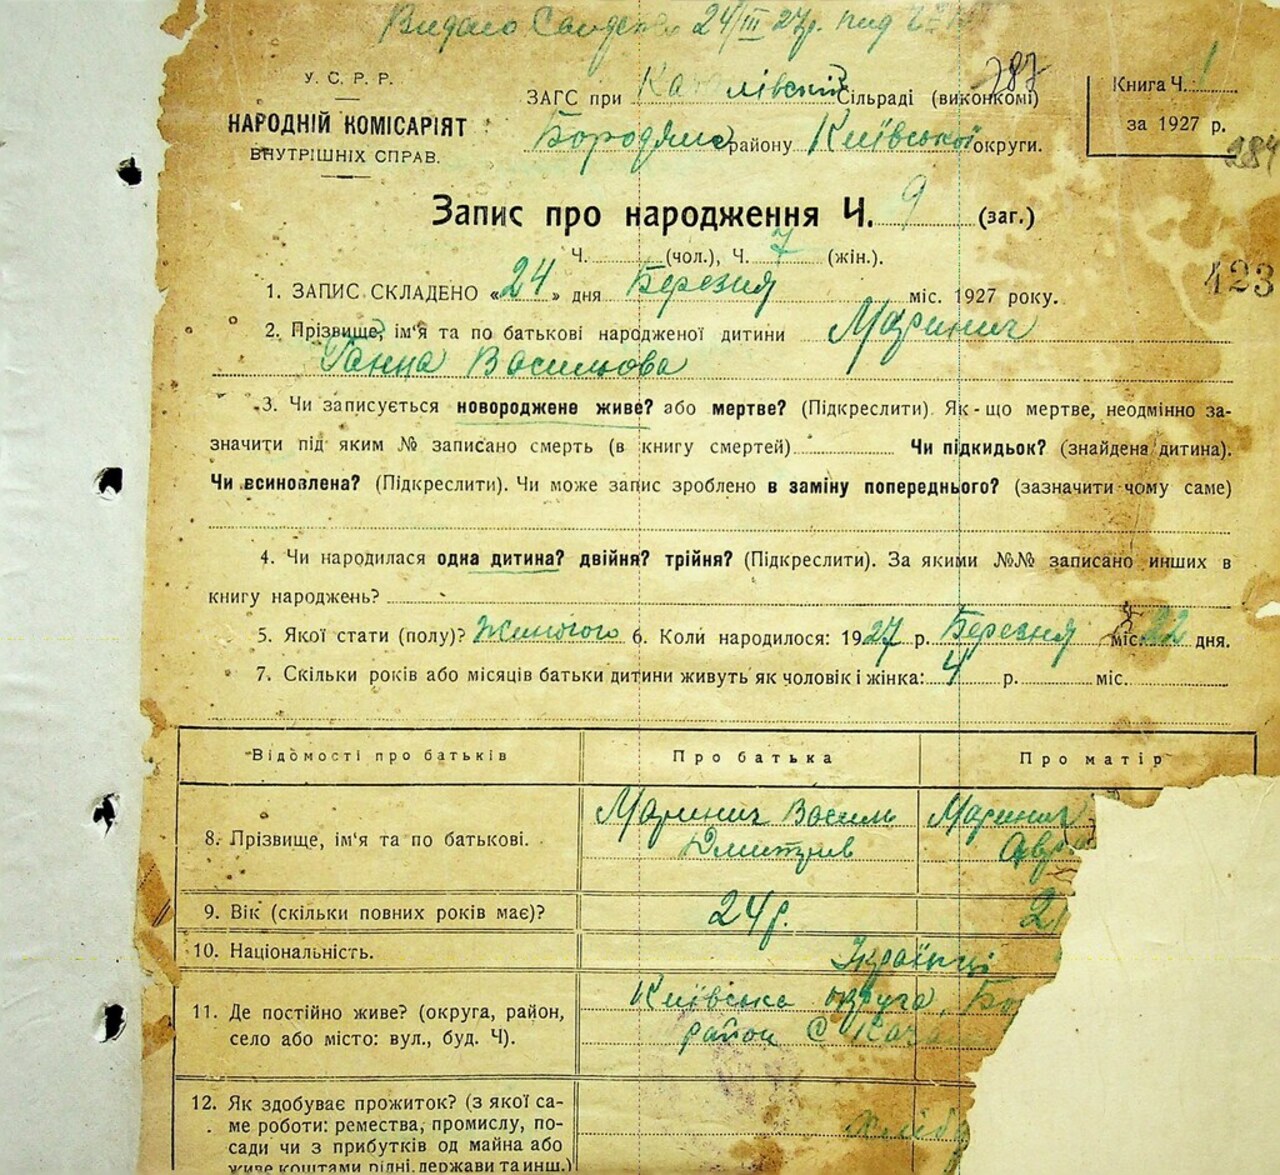 Видано 24/III 27р. под
У. С. Р. Р.
НАРОДНІЙ КОМІСАРІЯТ
ВНУТРІШНІХ СПРАВ.
787
ЗАГС при Сільраді (виконкомі)
Бородянс району Київської округи.
Книга Ч. 1
за 1927 р.
284
Запис про народження Ч. 9 (заг.)
Ч. (чол.), Ч. 7 (жін.).
123
1. ЗАПИС СКЛАДЕНО «24» дня Березня міс. 1927 року.
2. Прізвище, ім'я та по батькові народженої дитини Маринич
Ганна Василіова
3. Чи записується новороджене живе? або мертве? (Підкреслити). Як-що мертве, неодмінно за-
значити під яким № записано смерть (в книгу смертей) Чи підкидьок? (знайдена дитина).
Чи всиновлена? (Підкреслити). Чи може запис зроблено в заміну попереднього? (зазначити чому саме)
4. Чи народилася одна дитина? двійня? трійня? (Підкреслити). За якими №№ записано инших в
книгу народжень?
5. Якої стати (полу)? Жиночого 6. Коли народилося: 1927 р. Березня міс. 22 дня.
7. Скільки років або місяців батьки дитини живуть як чоловік і жінка: 4 р. міс.
Відомості про батьків Про батька Про матір
8. Прізвище, ім'я та по батькові. Маринич Василь Маринич
Дмитрів
9. Вік (скільки повних років має)? 24р.
10. Національність. Українці
11. Де постійно живе? (округа, район, Київська округа, Бо
село або місто: вул., буд. Ч). район С.
12. Як здобуває прожиток? (з якої са-
ме роботи: ремества, промислу, по-
сади чи з прибутків од майна або
живе коштами рідні, держави та инш.)